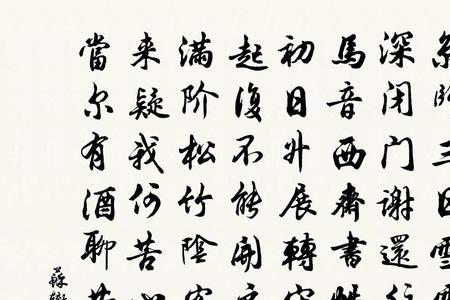 三日雪
深闭门謝還行
馬音西齋書
初日升展轉空
起復不能開
满阶松竹陰客
来疑我何苦心
當尔有酒聊
蘇轍